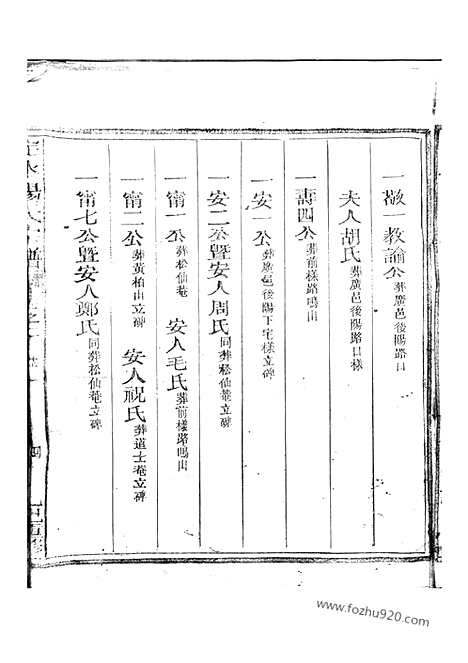 一敬一教諭公葬廣邑後陽路口
夫人胡氏葬廣邑後陽路口様
一壽四公葬前樣路鳴山
一安一公葬廣邑後陽下宅樣立碑
一安二公暨安人周氏同葬松仙菴立碑
一甯一公葬松仙菴 安人毛氏葬前樣路鳴山
一甯二公葬黃柏山立碑 安人祝氏葬道士菴立碑
一甯七公暨安人鄭氏同葬松仙菴立碑
www.fozhu920.com